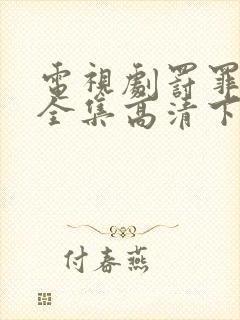 電視劇罰罪
全集高清下
付春燕